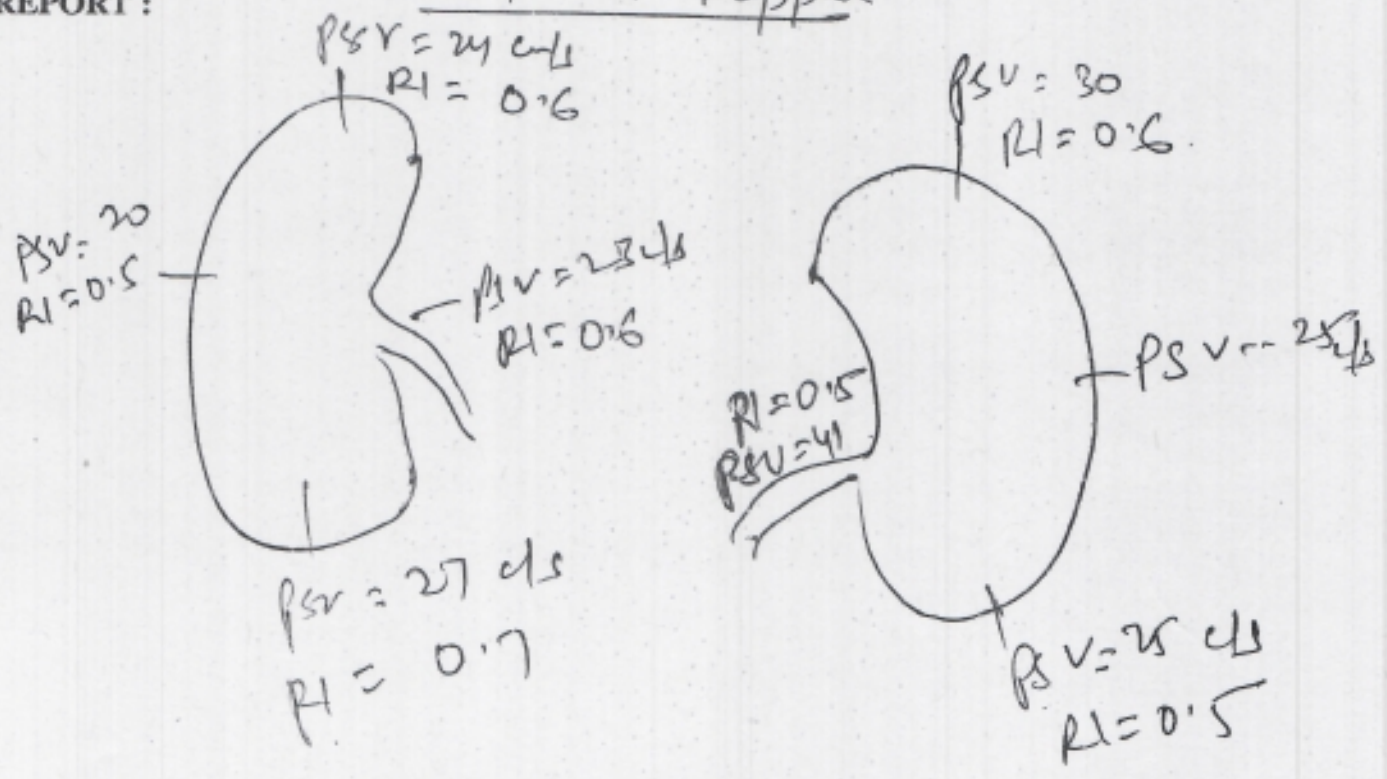 REPORT :
PSV = 24 cm/s
RI = 0.6
PSV = 20
RI = 0.5
PSV = 23 c/s
RI = 0.6
PSV = 27 c/s
RI = 0.7
PSV = 30
RI = 0.6
PSV -- 25 c/s
RI = 0.5
PSV = 41
PSV = 25 c/s
RI = 0.5